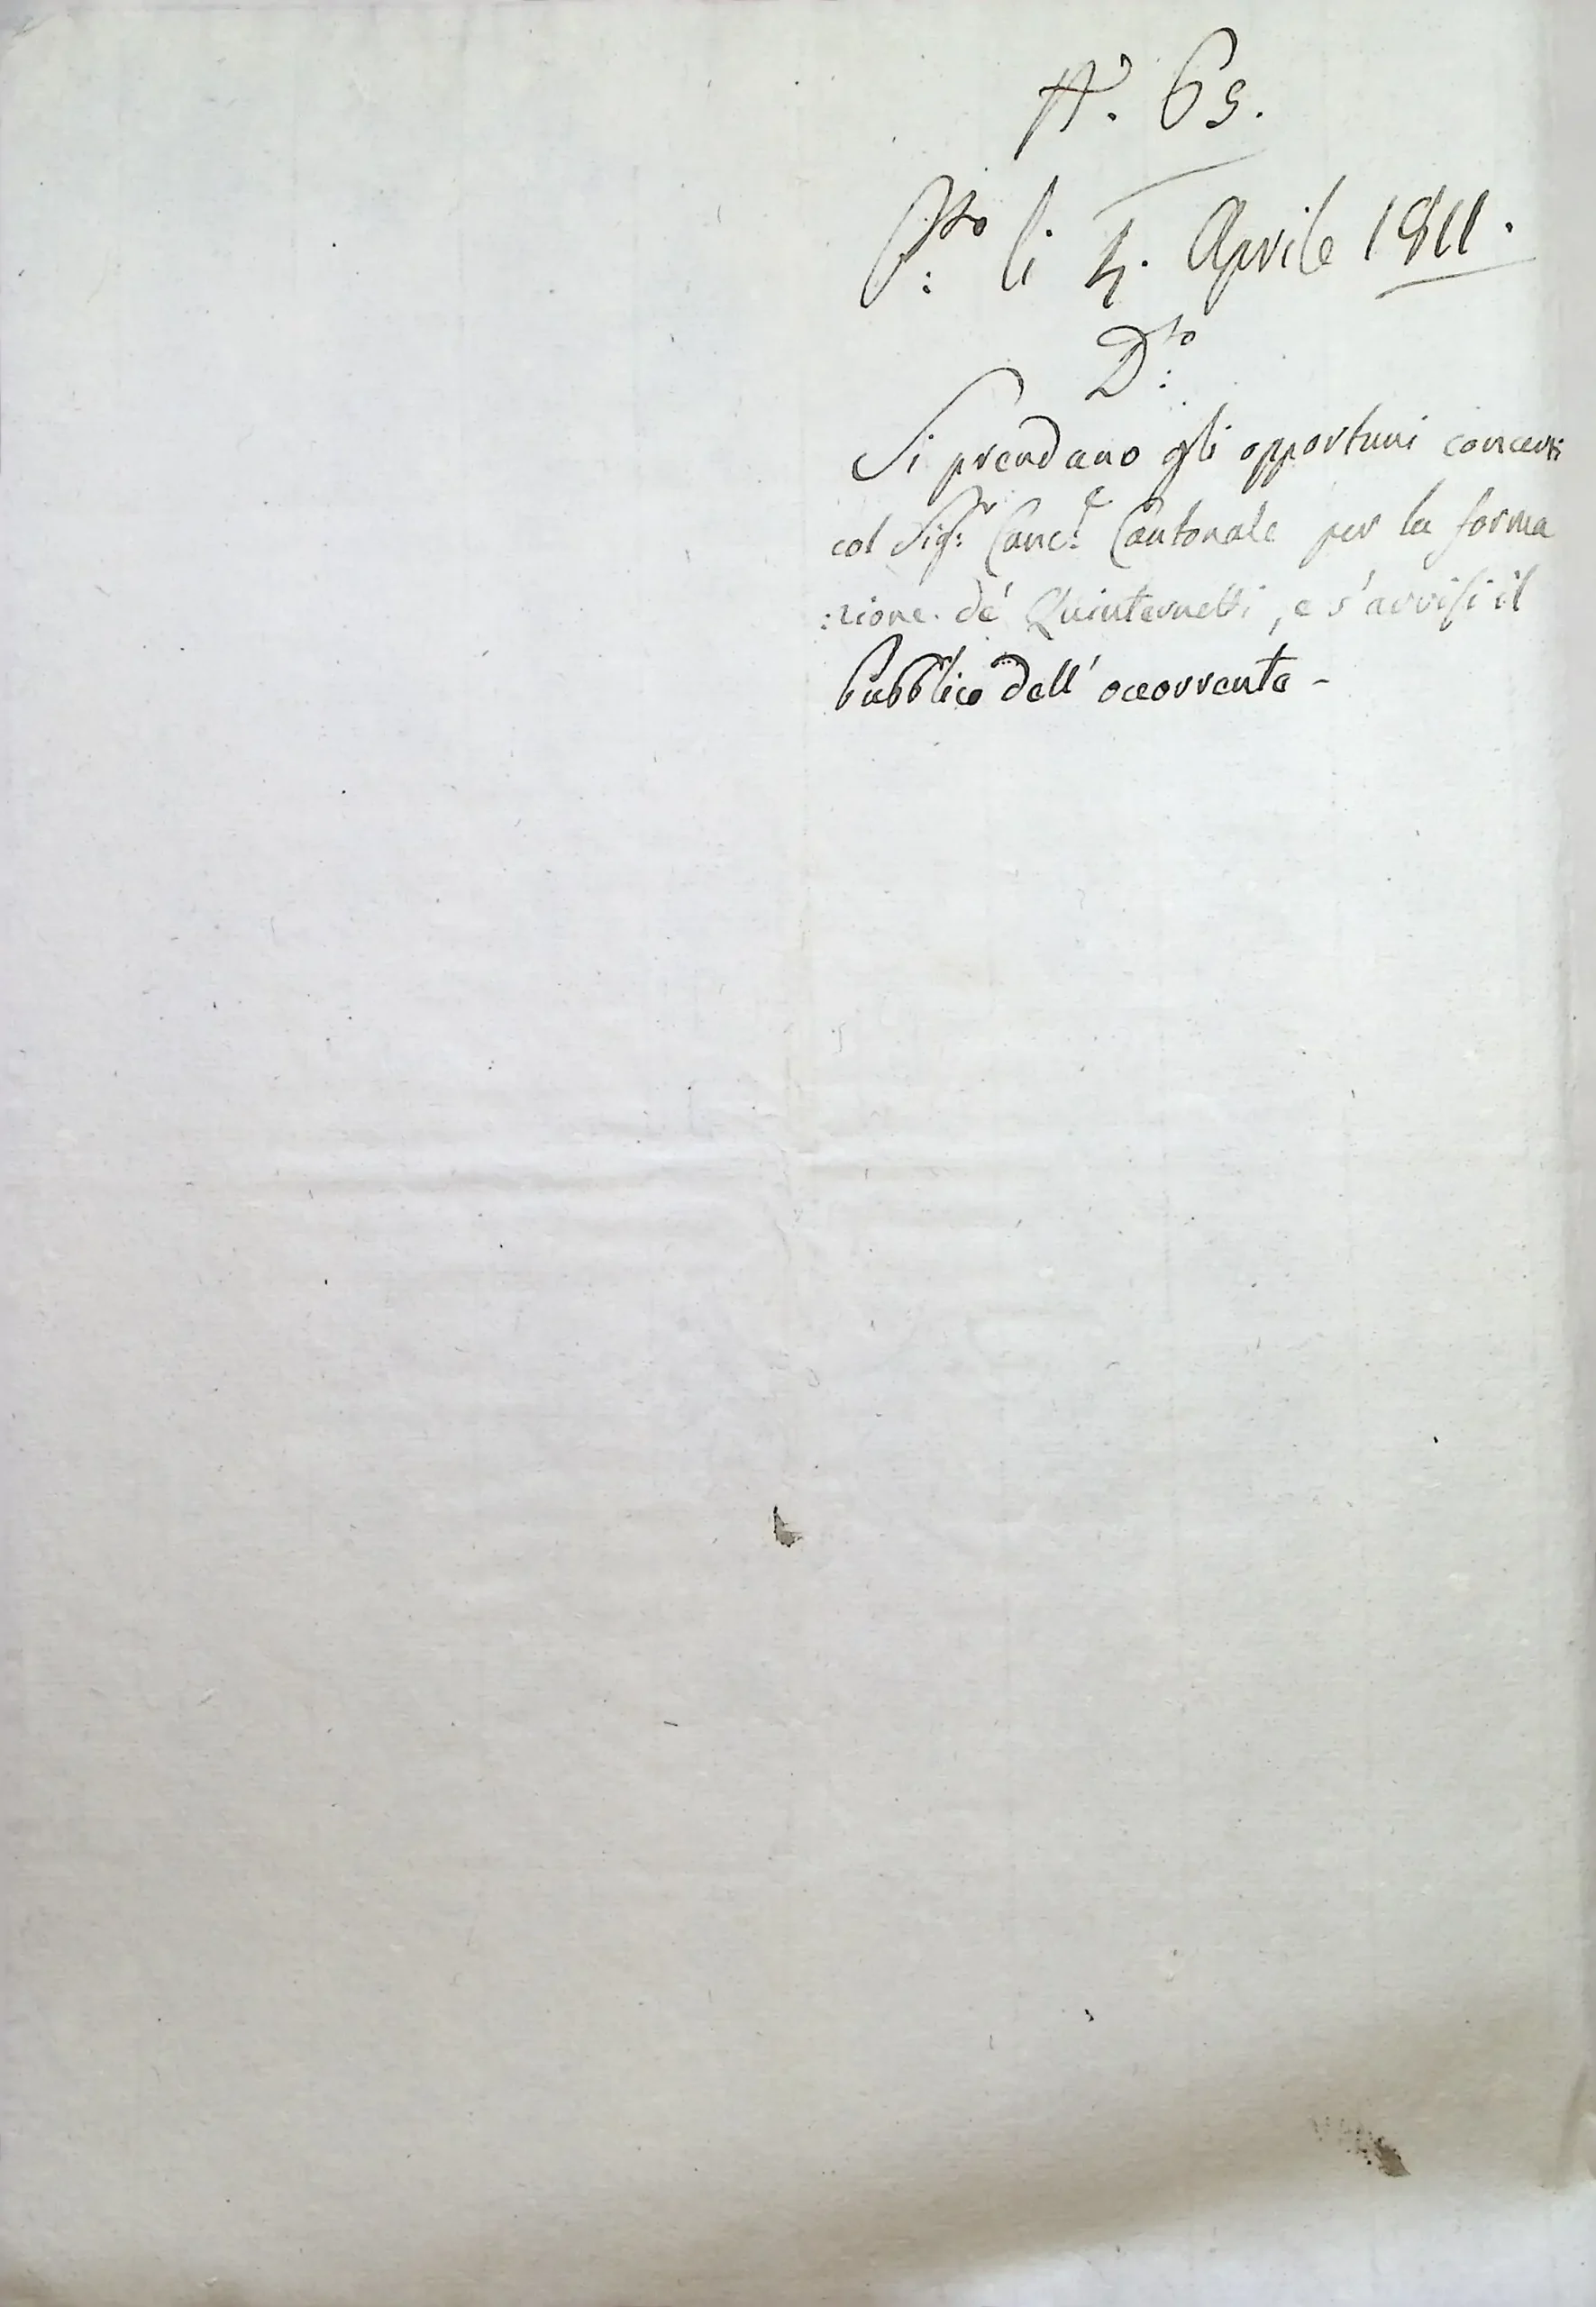 N.° 65.
P.tto li 4. Aprile 1811.
D.to
Si prendano gli opportuni concerti
col Sig.r Canc.e Cantonale per la forma
:zione de' Quinternetti, e s'avvisi il
Pubblico dell'occorrente -